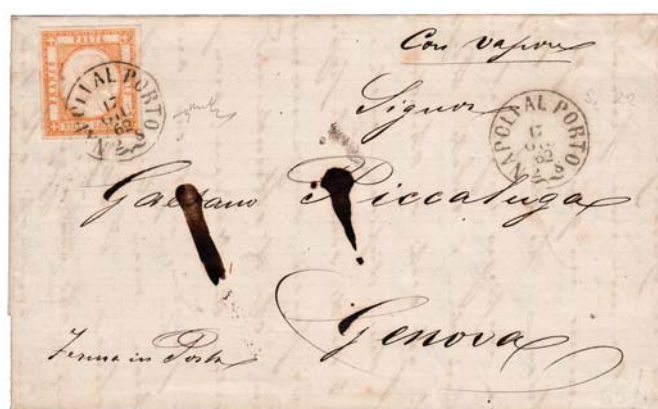 POSTE
NAPOLI AL PORTO
17
62
Con vapore
Signor
NAPOLI AL PORTO
17
62
Gaetano Piccaluga
Genova
Ferma in Posta